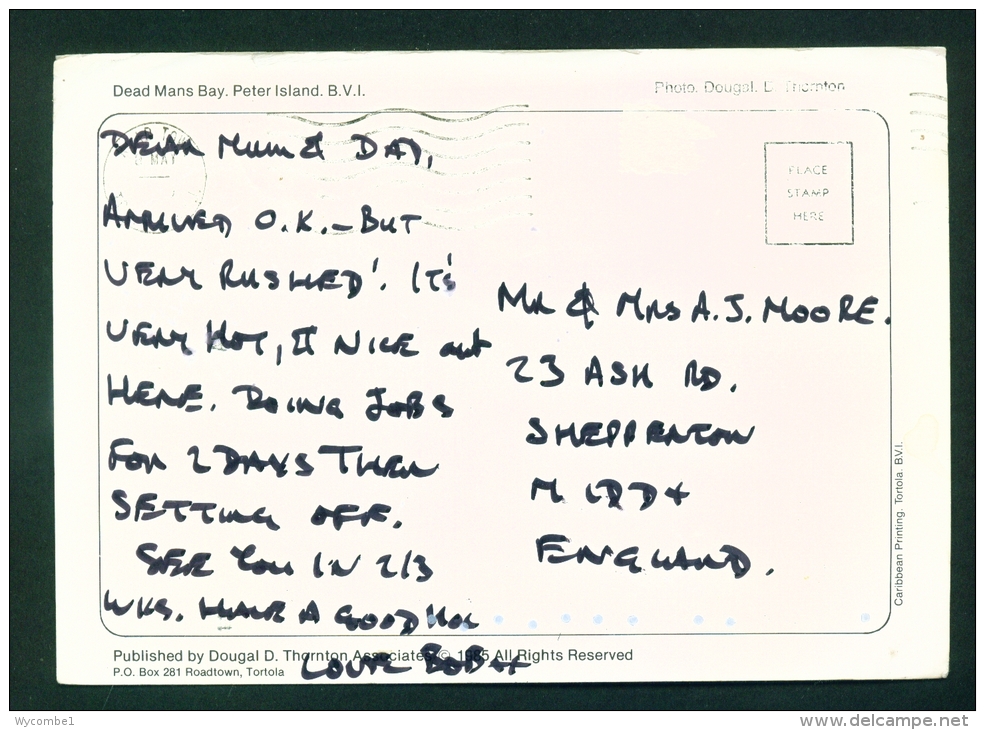 Dead Mans Bay. Peter Island. B.V.I.
Photo. Dougal. D. Thornton
PLACE
STAMP
HERE
DEAR MUM & DAD,
ARRIVED O.K. – BUT
VERY RUSHED! IT'S
VERY HOT, & NICE out
HERE. DOING JOBS
FOR 2 DAYS THEN
SETTING OFF.
SEE YOU IN 2/3
WKS. HAVE A GOOD HOL
LOVE BOB xx
MR & MRS A.J. MOORE.
23 ASH RD.
SHEPPERTON
MIDDX
ENGLAND.
Caribbean Printing. Tortola. B.V.I.
Published by Dougal D. Thornton Associates © 1985 All Rights Reserved
P.O. Box 281 Roadtown, Tortola
Wycombe1
www.delcampe.net